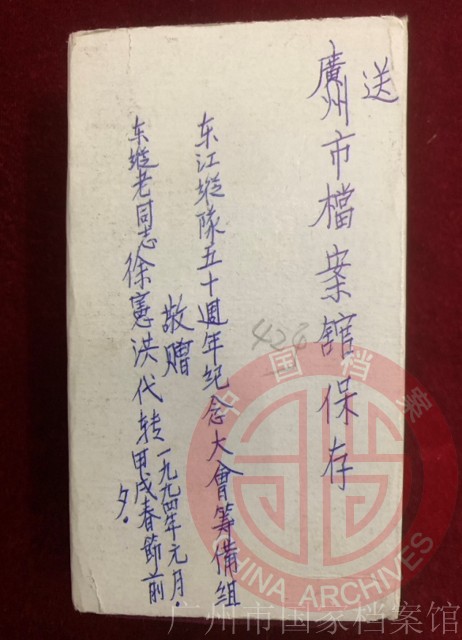 送
廣州市檔案館保存
东江縱隊五十週年纪念大會筹備组
敬赠
东縱老同志徐憲洪代转
一九九四年元月.
甲戌春節前
夕.
424
中国档案
CHINA ARCHIVES
广州市国家档案馆